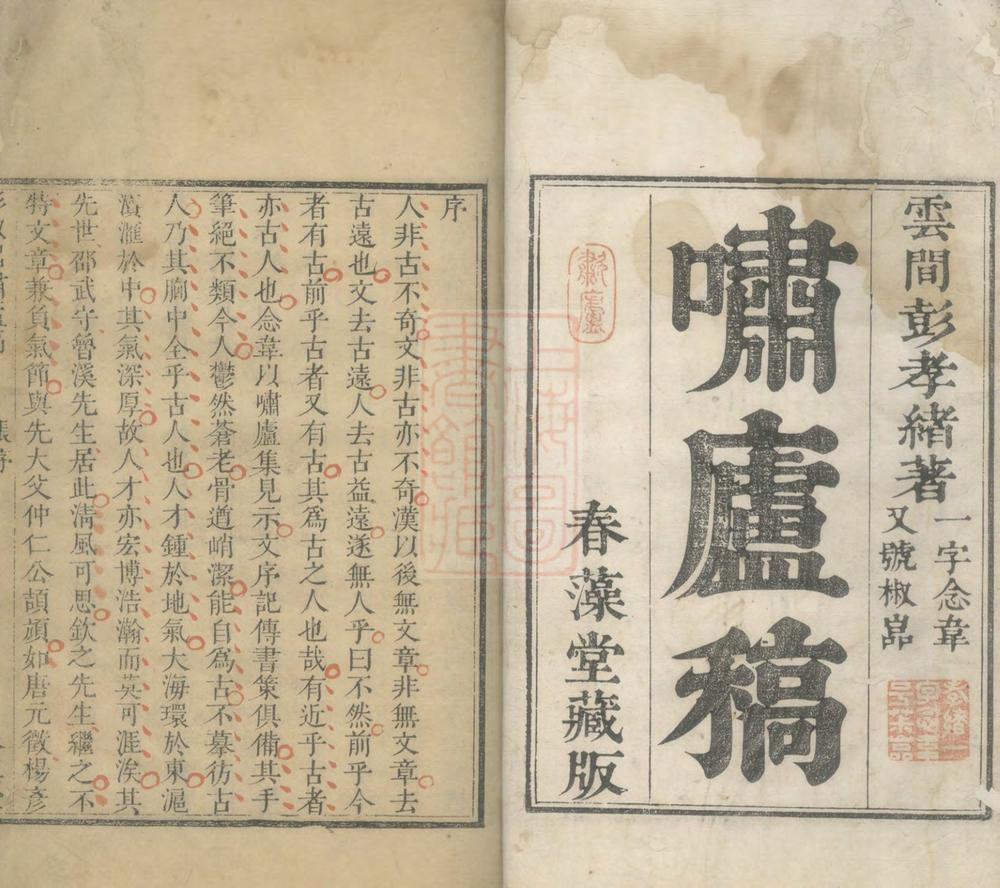 雲間彭孝緒著
一字念韋
又號椒嵓
嘯廬稿
春藻堂藏版
序
人非古不奇文非古亦不奇漢以後無文章非無文章去
古遠也文去古遠人去古益遠遂無人乎曰不然前乎今
者有古前乎古者又有古其爲古之人也哉有近乎古者
亦古人也念韋以嘯廬集見示文序記傳書策俱備其手
筆絕不類今人鬱然蒼老骨遒峭潔能自爲古不摹彷古
人乃其胸中全乎古人也人才鍾於地氣大海環於東滬
瀆滙於中其氣深厚故人才亦宏博浩瀚而莫可涯涘其
先世邵武守魯溪先生居此淸風可思欽之先生繼之不
特文章兼負氣節與先大父仲仁公頡頏如唐元徵楊彥